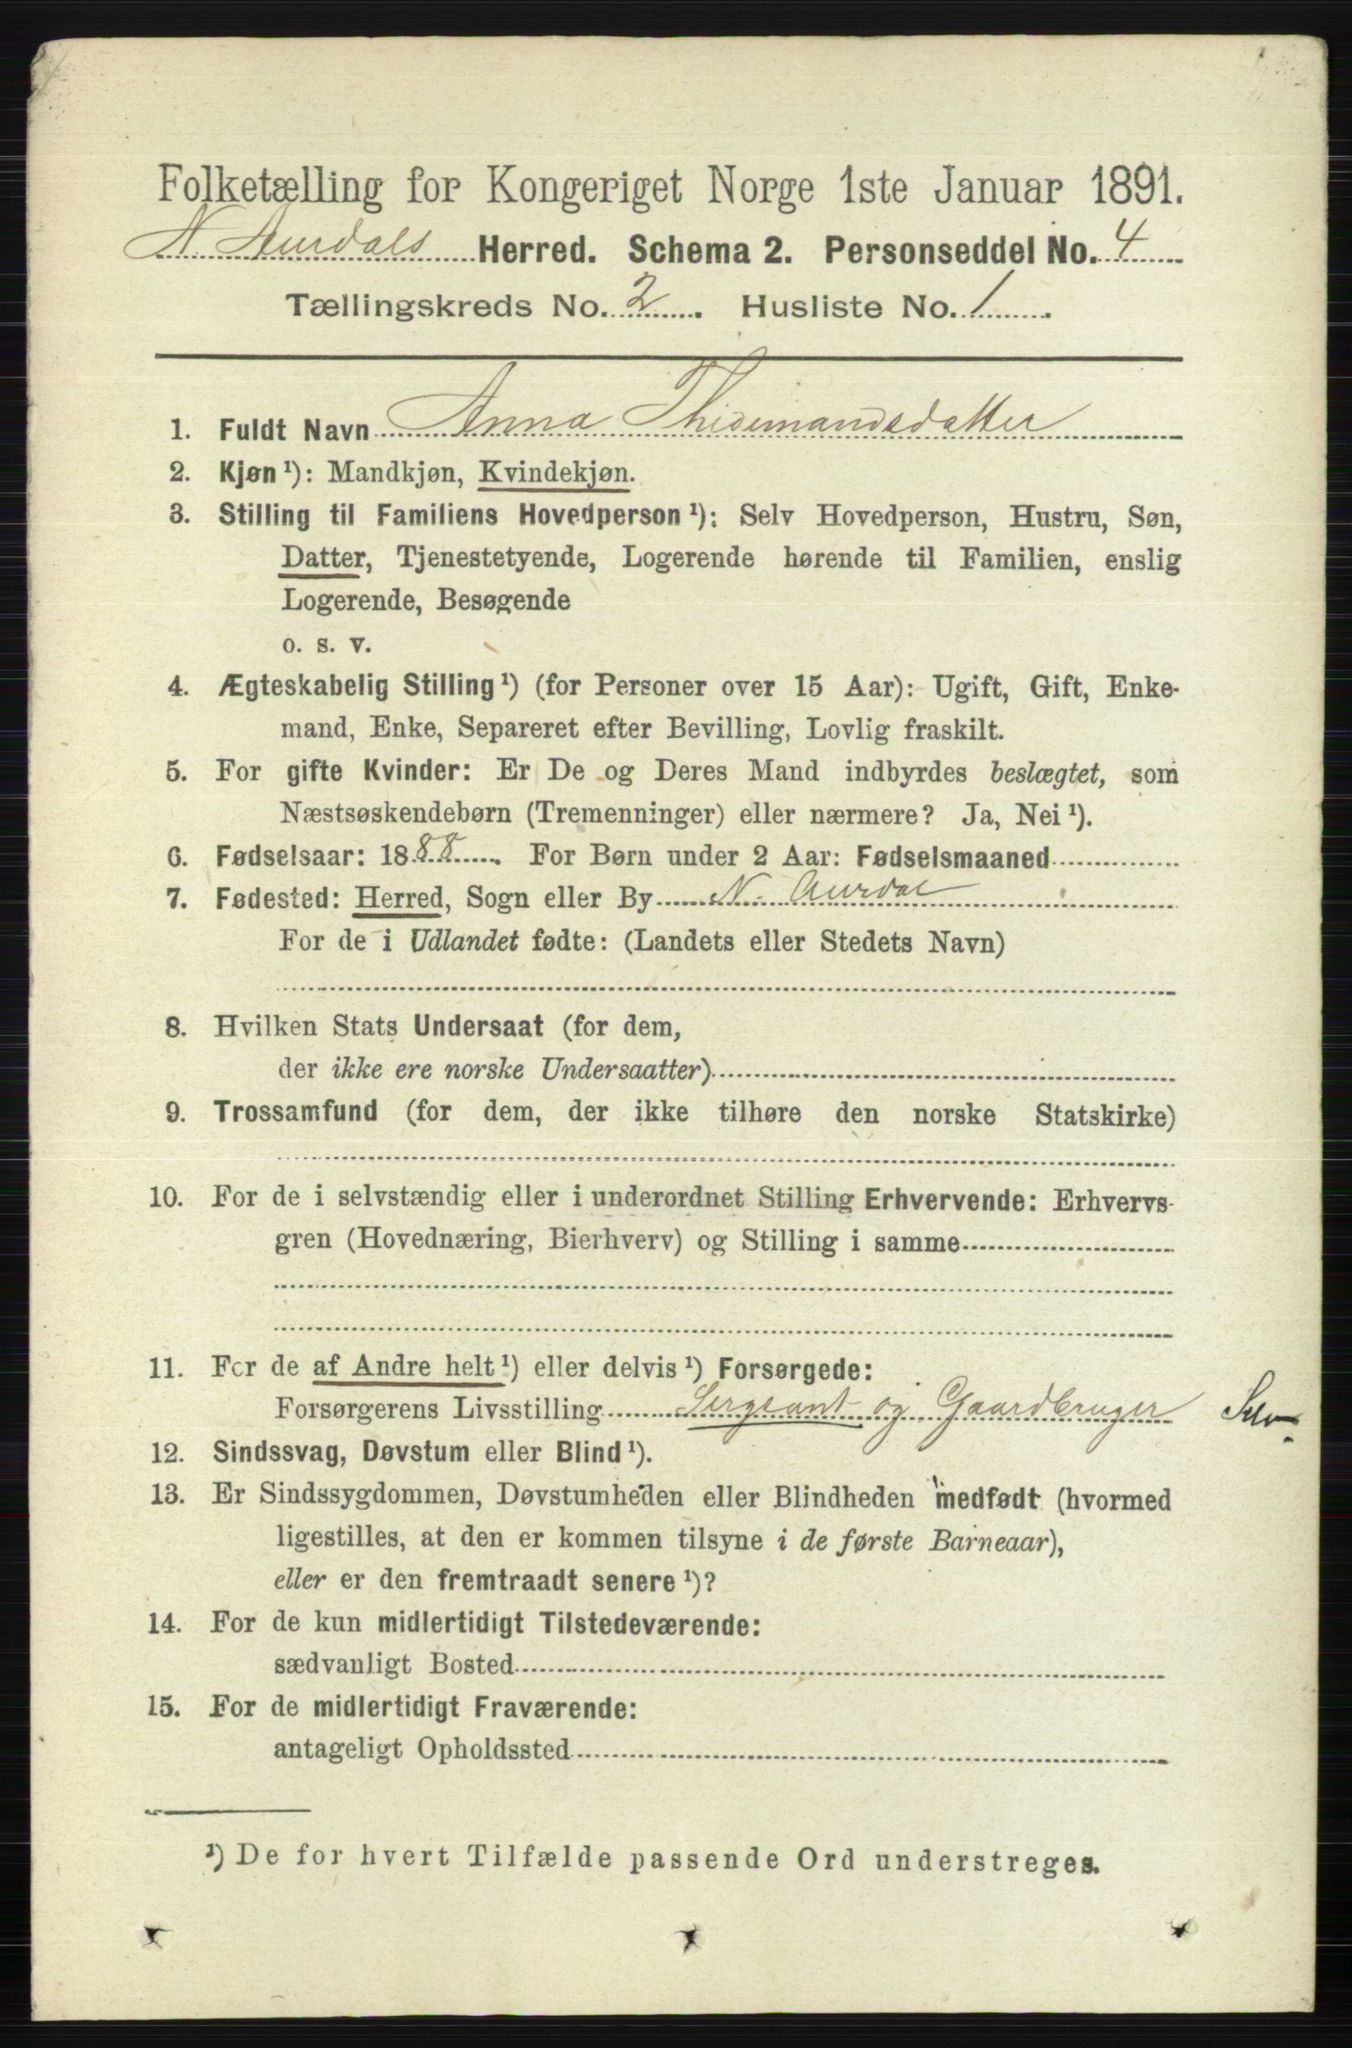 Folketælling for Kongeriget Norge 1ste Januar 1891.
N. Aurdals Herred. Schema 2. Personseddel No. 4
Tællingskreds No. 2. Husliste No. 1.
1. Fuldt Navn Anna Thidemandsdatter
2. Kjøn ¹): Mandkjøn, Kvindekjøn.
3. Stilling til Familiens Hovedperson ¹): Selv Hovedperson, Hustru, Søn,
Datter, Tjenestetyende, Logerende hørende til Familien, enslig
Logerende, Besøgende
o. s. v.
4. Ægteskabelig Stilling ¹) (for Personer over 15 Aar): Ugift, Gift, Enke-
mand, Enke, Separeret efter Bevilling, Lovlig fraskilt.
5. For gifte Kvinder: Er De og Deres Mand indbyrdes beslægtet, som
Næstsøskendebørn (Tremenninger) eller nærmere? Ja, Nei ¹).
6. Fødselsaar: 1888. For Børn under 2 Aar: Fødselsmaaned
7. Fødested: Herred, Sogn eller By N. Aurdal
For de i Udlandet fødte: (Landets eller Stedets Navn)
8. Hvilken Stats Undersaat (for dem,
der ikke ere norske Undersaatter)
9. Trossamfund (for dem, der ikke tilhøre den norske Statskirke)
10. For de i selvstændig eller i underordnet Stilling Erhvervende: Erhvervs-
gren (Hovednæring, Bierhverv) og Stilling i samme
11. For de af Andre helt ¹) eller delvis ¹) Forsørgede:
Forsørgerens Livsstilling Sergeant og Gaardbruger Selv
12. Sindssvag, Døvstum eller Blind ¹).
13. Er Sindssygdommen, Døvstumheden eller Blindheden medfødt (hvormed
ligestilles, at den er kommen tilsyne i de første Barneaar),
eller er den fremtraadt senere ¹)?
14. For de kun midlertidigt Tilstedeværende:
sædvanligt Bosted
15. For de midlertidigt Fraværende:
antageligt Opholdssted
¹) De for hvert Tilfælde passende Ord understreges.